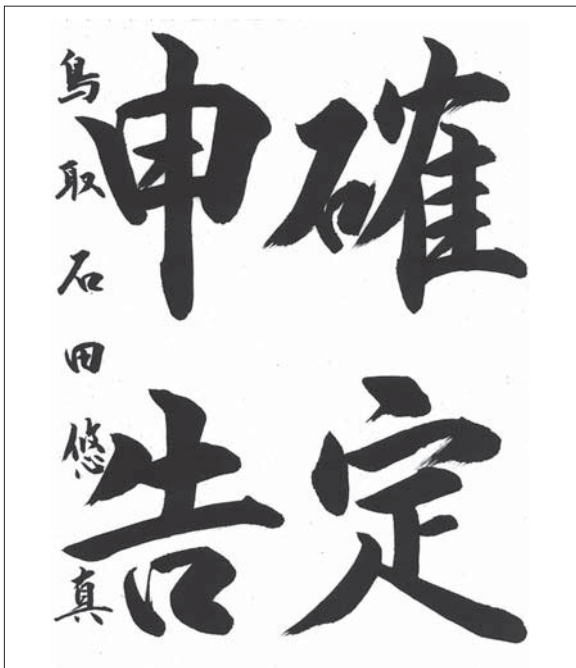 確定
申告
鳥取 石田悠真